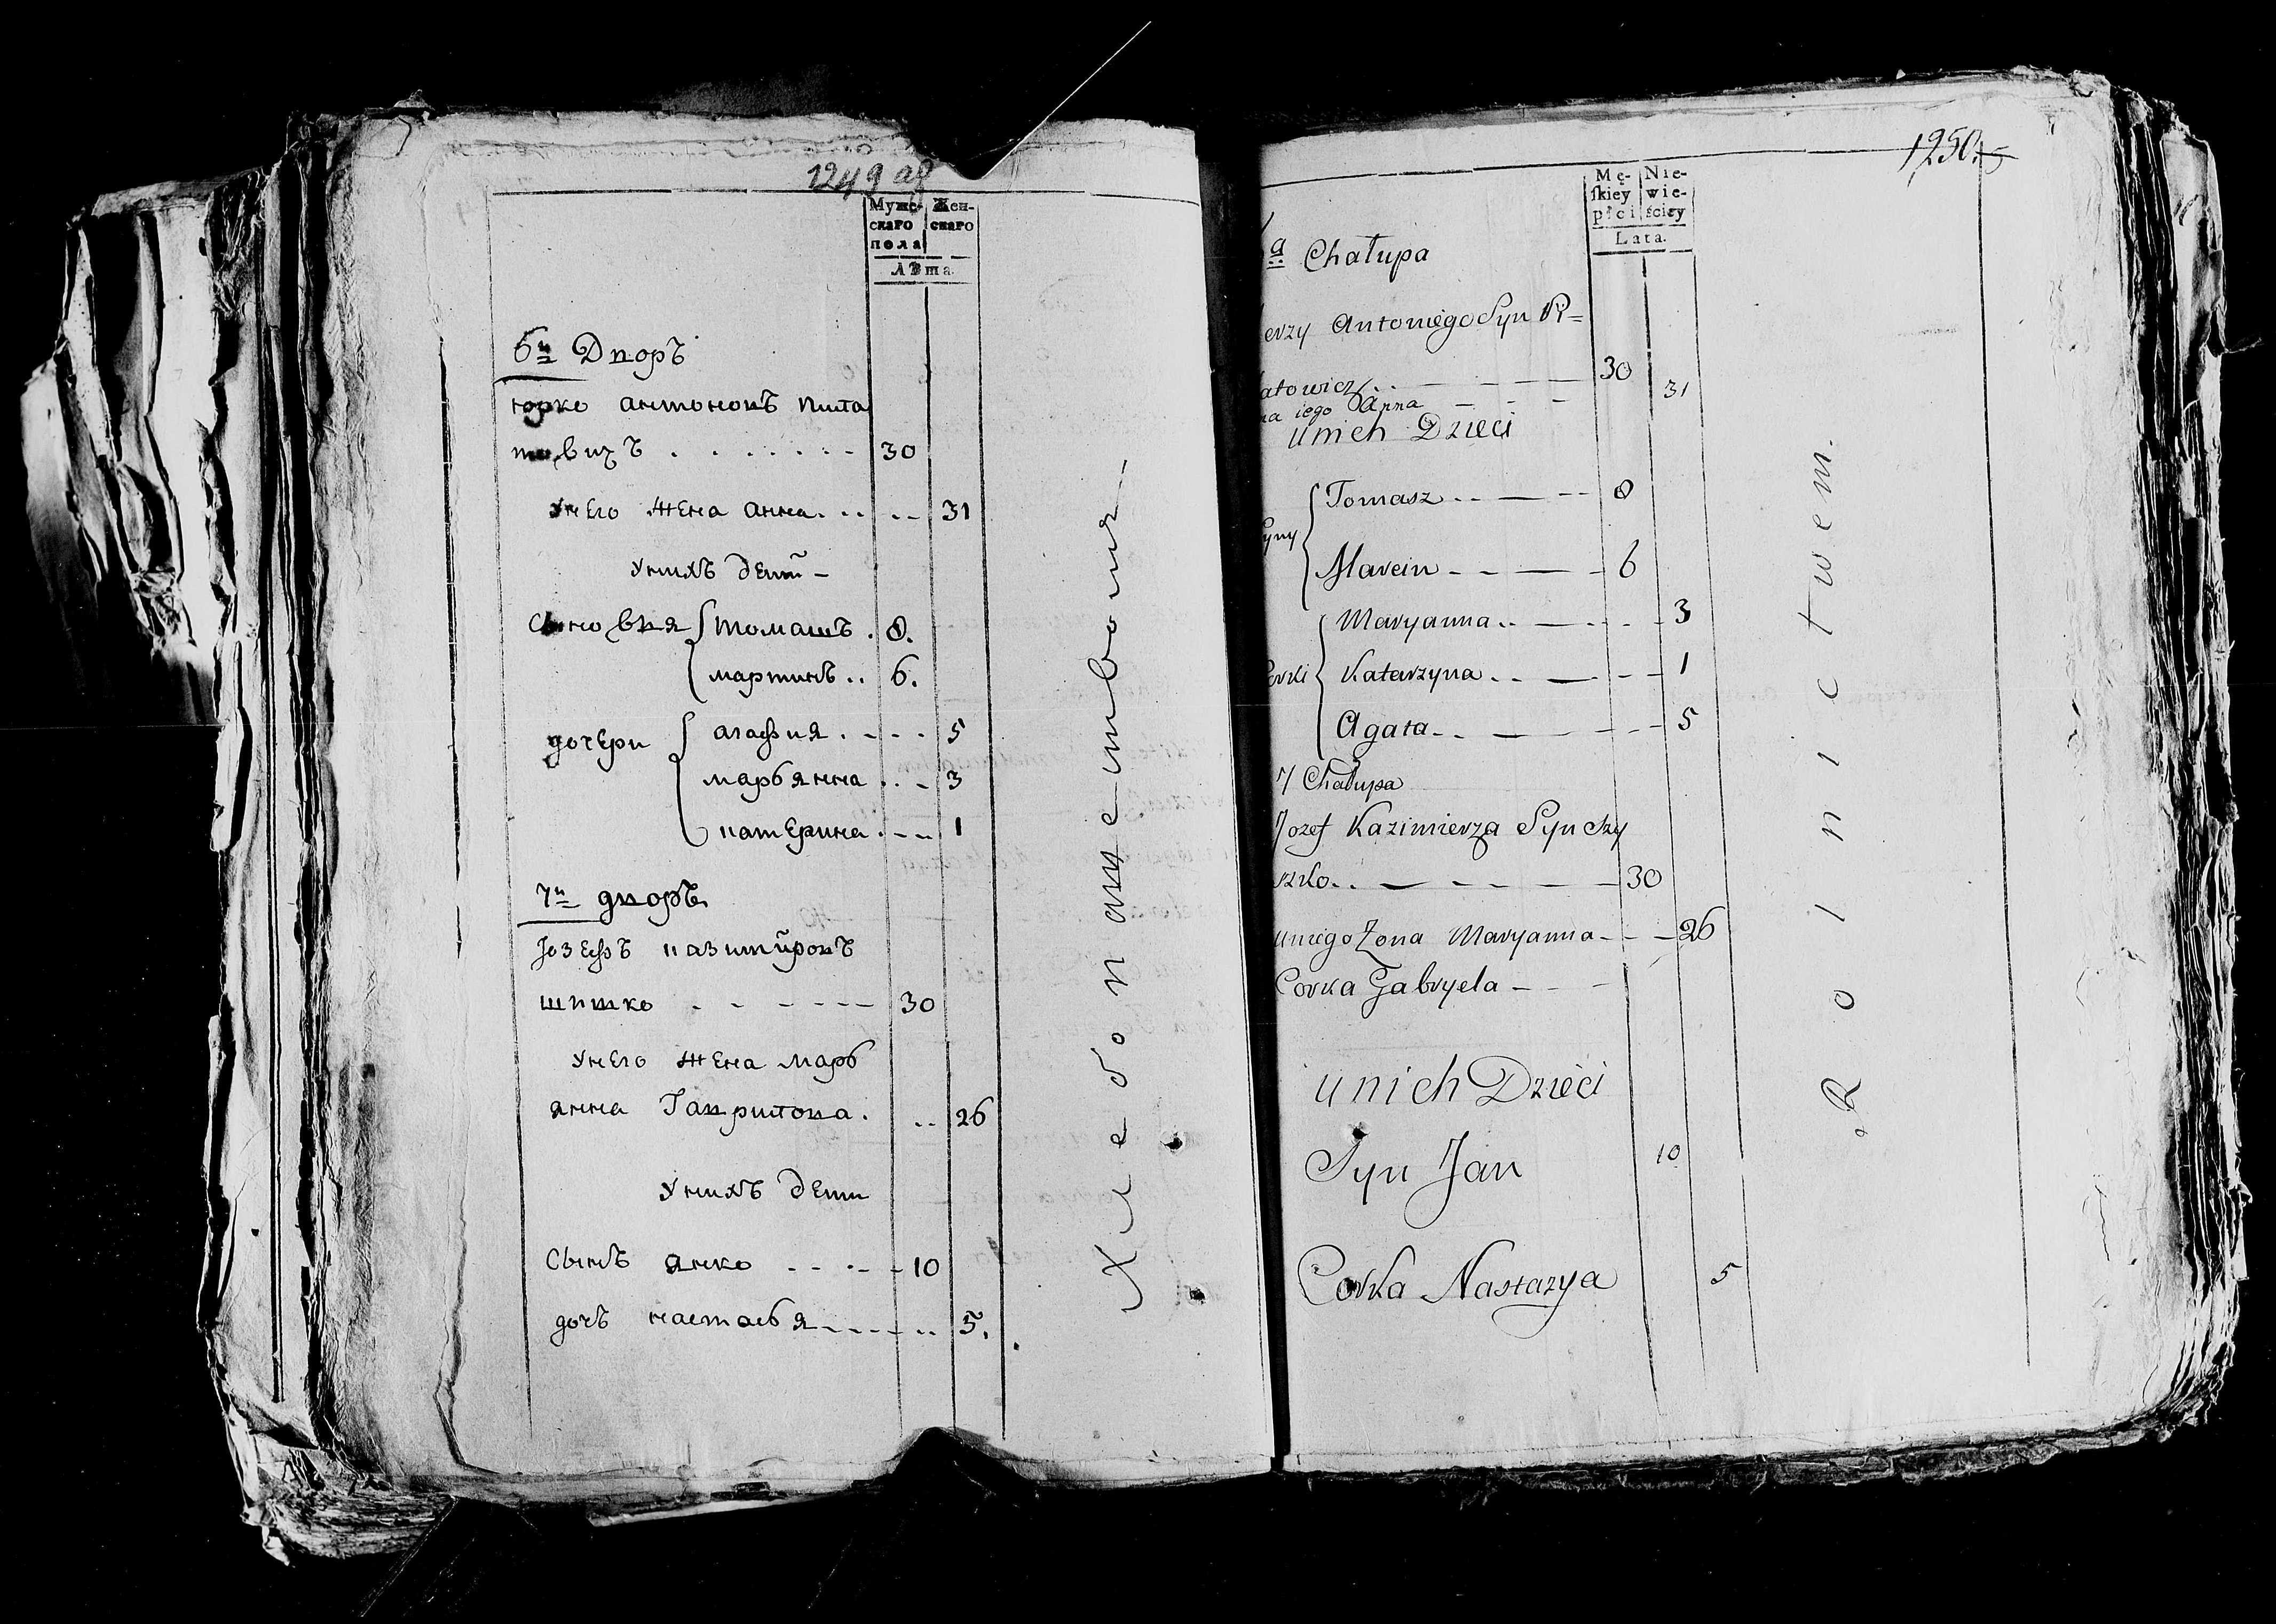 1249 об
Муже- Жен-
скаго скаго
пола
Лѣта.
6й Дворъ
юрко антоновъ пила
товичъ . . . . . . . 30
унего жена анна . . . . 31
унихъ дети
Сыновья томашъ . 8.
мартинъ . . 6.
дочери агафия . - - - 5
марьянна . . - 3
катерина . - - 1
7й дворъ
Іозефъ казимировъ
шишко . - - - - - 30
унего жена марь
янна Гаврилова . . . 26
унихъ дети
Сынъ янко - - - - 10
дочъ настасья - - - - . . 5.
Хлебопашеством
1250
Mę- Nie-
ſkiéy wie-
płci ściey
Lata.
a Chałupa
erzy Antoniego Syn Pi=
atowicz . . - - - - 30
na iego Anna - - - 31
unich Dzieci
yny Tomasz . . - - - 8
Marcin - - - - 6
orki Maryanna . . - - - 3
Katarzyna . . - - - 1
Agata - . - - - 5
7 Chałupa
Jozef Kazimierza Syn Szy
szko . . - - - - - 30
uniego Zona Maryanna - - - 26
Corka Gabryela - - -
unich Dzieci
Syn Jan 10
Corka Nastazya 5
Rolnictwem.